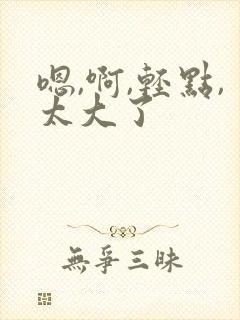 嗯,啊,輕點,
太大了
無爭三昧